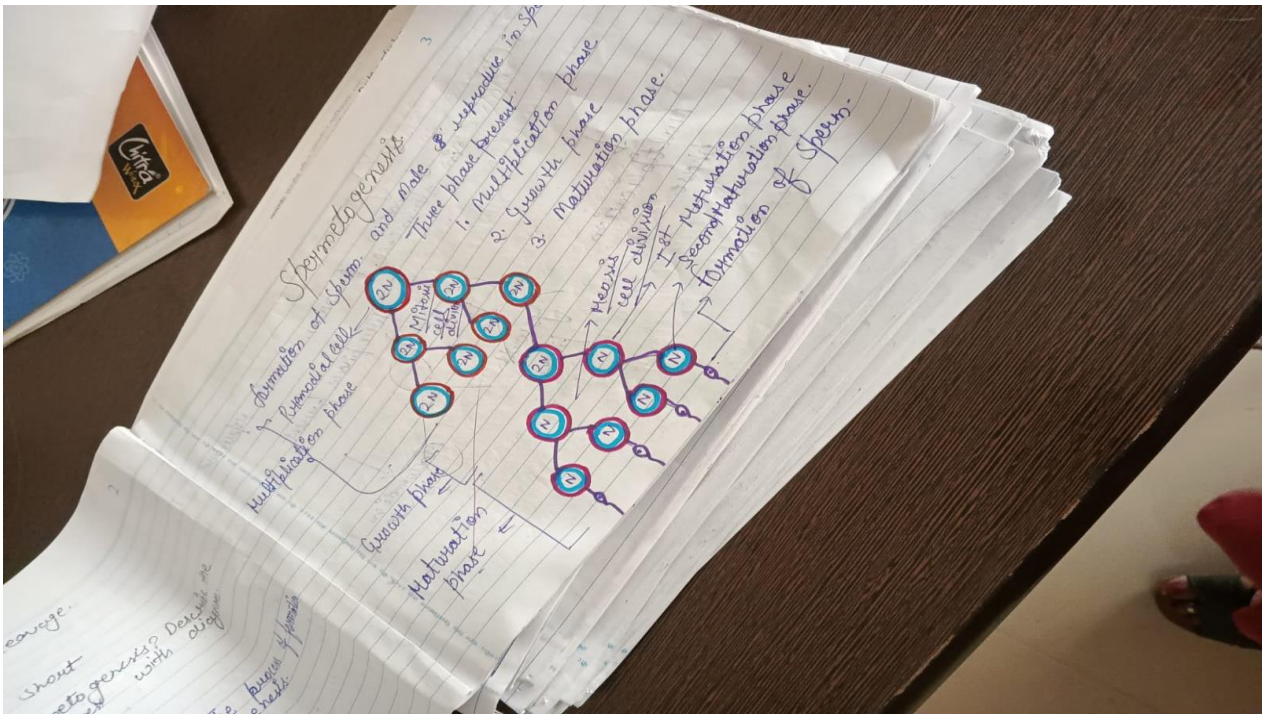 3
Spermetogenesis
formation of sperm.
and Male reproduce in
Three phase present.
1. Multiplication phase
2. Growth phase
3. Maturation phase.
Primodial cell
Multiplication phase
2N
2N
2N
Mitosis
cell
2N
2N
2N
2N
Growth phase
Maturation
phase
Meosis
cell division
Ist Meturation phase
Second Maturation phase.
formation of sperm.
2N
N
N
N
N
N
N
2
eavage.
short
eto genesis? Describe me
with diagram
process of
enesis.
Chitra